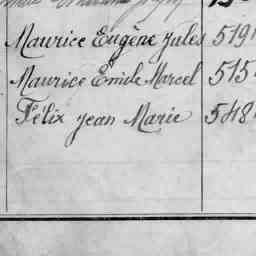 Maurice Eugène Jules 519
Maurice Emile Marcel 515
Félix Jean Marie 548